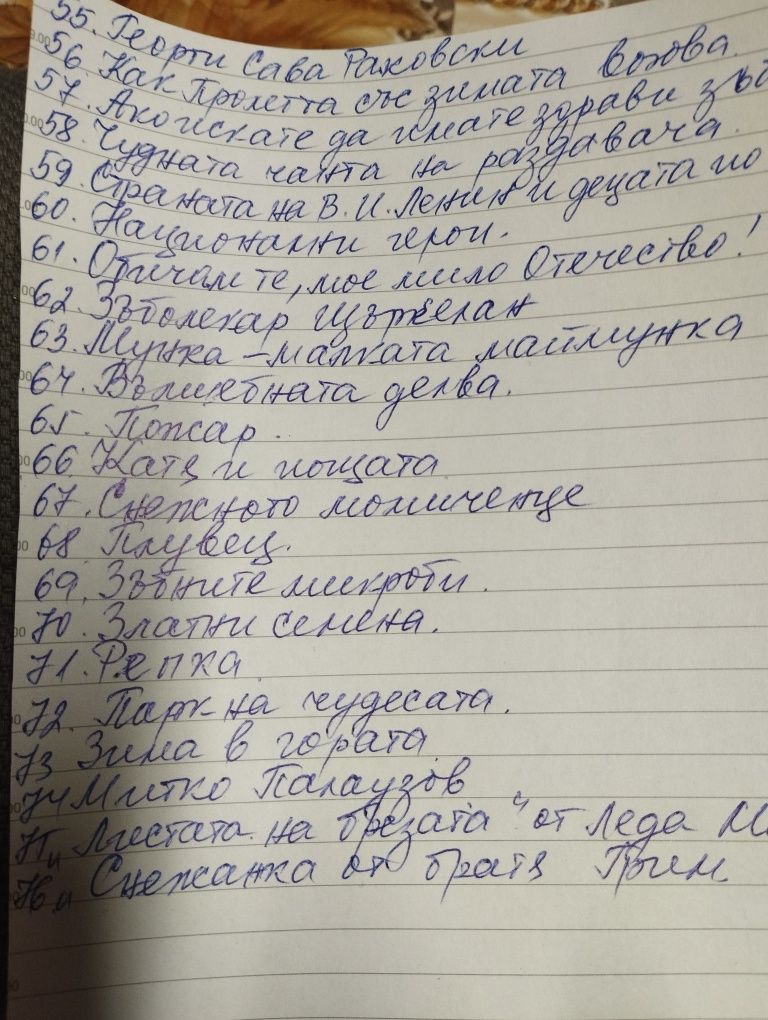 55. Георги Сава Раковски
56. Как Пролетта със зимата воюва.
57. Ако искате да имате здрави зъб
58. Чудната чанта на раздавача.
59. Страната на В. И. Ленин и децата по
60. Национални герои.
61. Обичам те, мое мило Отечество!
62. Зъболекар Щъркелан
63. Мунка - малката маймунка
64. Вълшебната делва.
65. Пожар.
66 Катя и нощата
67. Снежното момиченце
68 Плувец.
69. Зъбните микроби.
70. Златни семена.
71. Репка
72. Парк на чудесата.
73 Зима в гората
74 Митко Палаузов
75 „Листата на брезата" от Леда М
76 „Снежанка от братя Грим